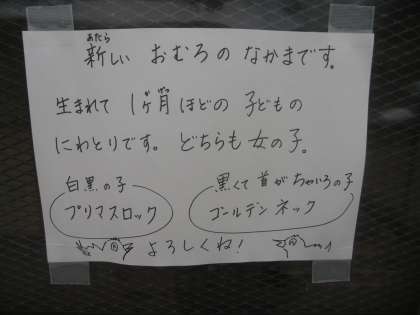 あたら
新しい おむろの なかまです。
生まれて 1ヶ月 ほどの 子どもの
にわとりです。 どちらも 女の子。
白黒の子
プリマスロック
黒くて 首が ちゃいろの子
ゴールデン ネック
よろしくね!